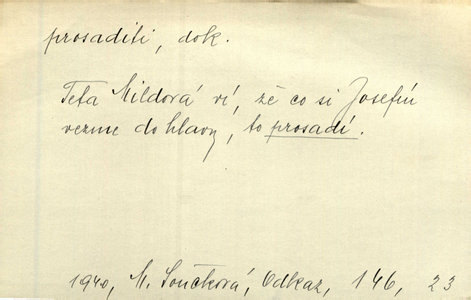 prosaditi, dok.
Teta Mildová ví, že co si Josefín
vezme do hlavy, to prosadí.
1940, M. Součková, Odkaz, 146, 23